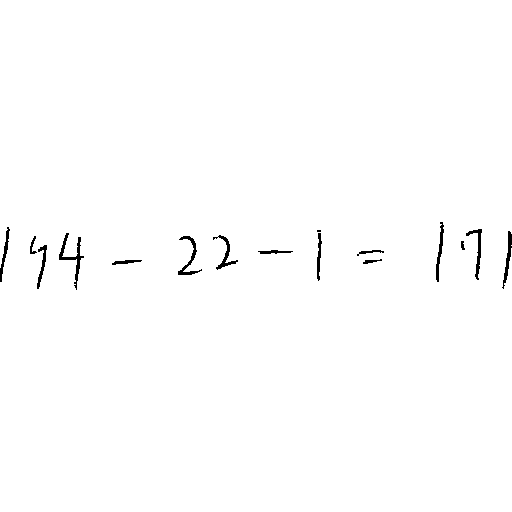 194 - 22 - 1 = 171